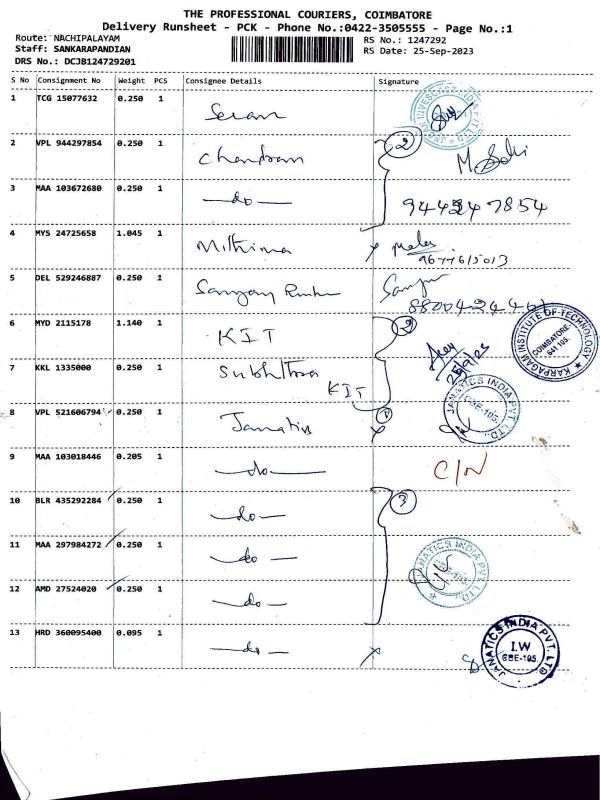 THE PROFESSIONAL COURIERS, COIMBATORE
Delivery Runsheet - PCK - Phone No.:0422-3505555 - Page No.:1
Route: NACHIPALAYAM RS No.: 1247292
Staff: SANKARAPANDIAN RS Date: 25-Sep-2023
DRS No.: DCJB124729201
S No Consignment No Weight PCS Consignee Details Signature
1 TCG 15077632 0.250 1
2 VPL 944297854 0.250 1 Chandran 2
3 MAA 103672680 0.250 1 -do-
4 MYS 24725658 1.045 1 Mithima
9677615013
5 DEL 529246887 0.250 1 Sanjay
6 MYD 2115178 1.140 1 KIT 2
25/9/23
KARPAGAM INSTITUTE OF TECHNOLOGY COIMBATORE- 641 105.
7 KKL 1335000 0.250 1 KIT
JANATICS INDIA PVT. LTD. CBE-105.
8 VPL 521606794 0.250 1 Janatics
9 MAA 103018446 0.205 1 -do- C/N
10 BLR 435292284 0.250 1 -do- 3
11 MAA 297984272 0.250 1 -do-
JANATICS INDIA PVT. LTD.
12 AMD 27524020 0.250 1 -do-
13 HRD 360095400 0.095 1 -do-
JANATICS INDIA PVT. LTD I.W CBE-105